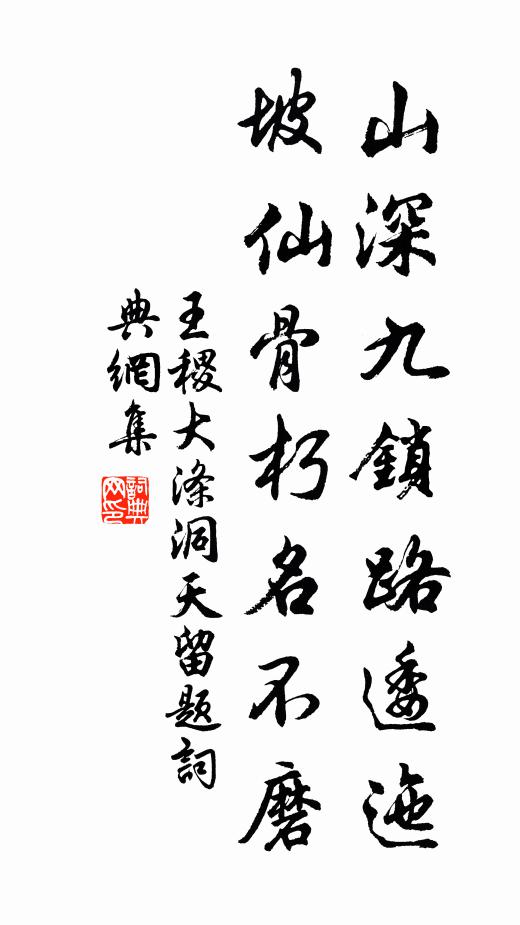 山深九鎖路逶迤
坡仙骨朽名不磨
王稷大滌洞天留題詞
典網集
詞典网印